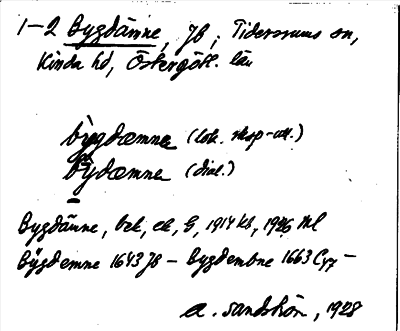 1-2 Bygdämne, JB, Tidersrums sn,
Kinda hd, Östergötl. län
bygdæmne (lok. skap-utt.)
bydæmne (dial.)
Bygdämne, bek, ek, G, 1914 kb, 1926 ml
Bygdemne 1643 JB - Bygdembne 1663 Cy7 -
A. Sandström, 1928